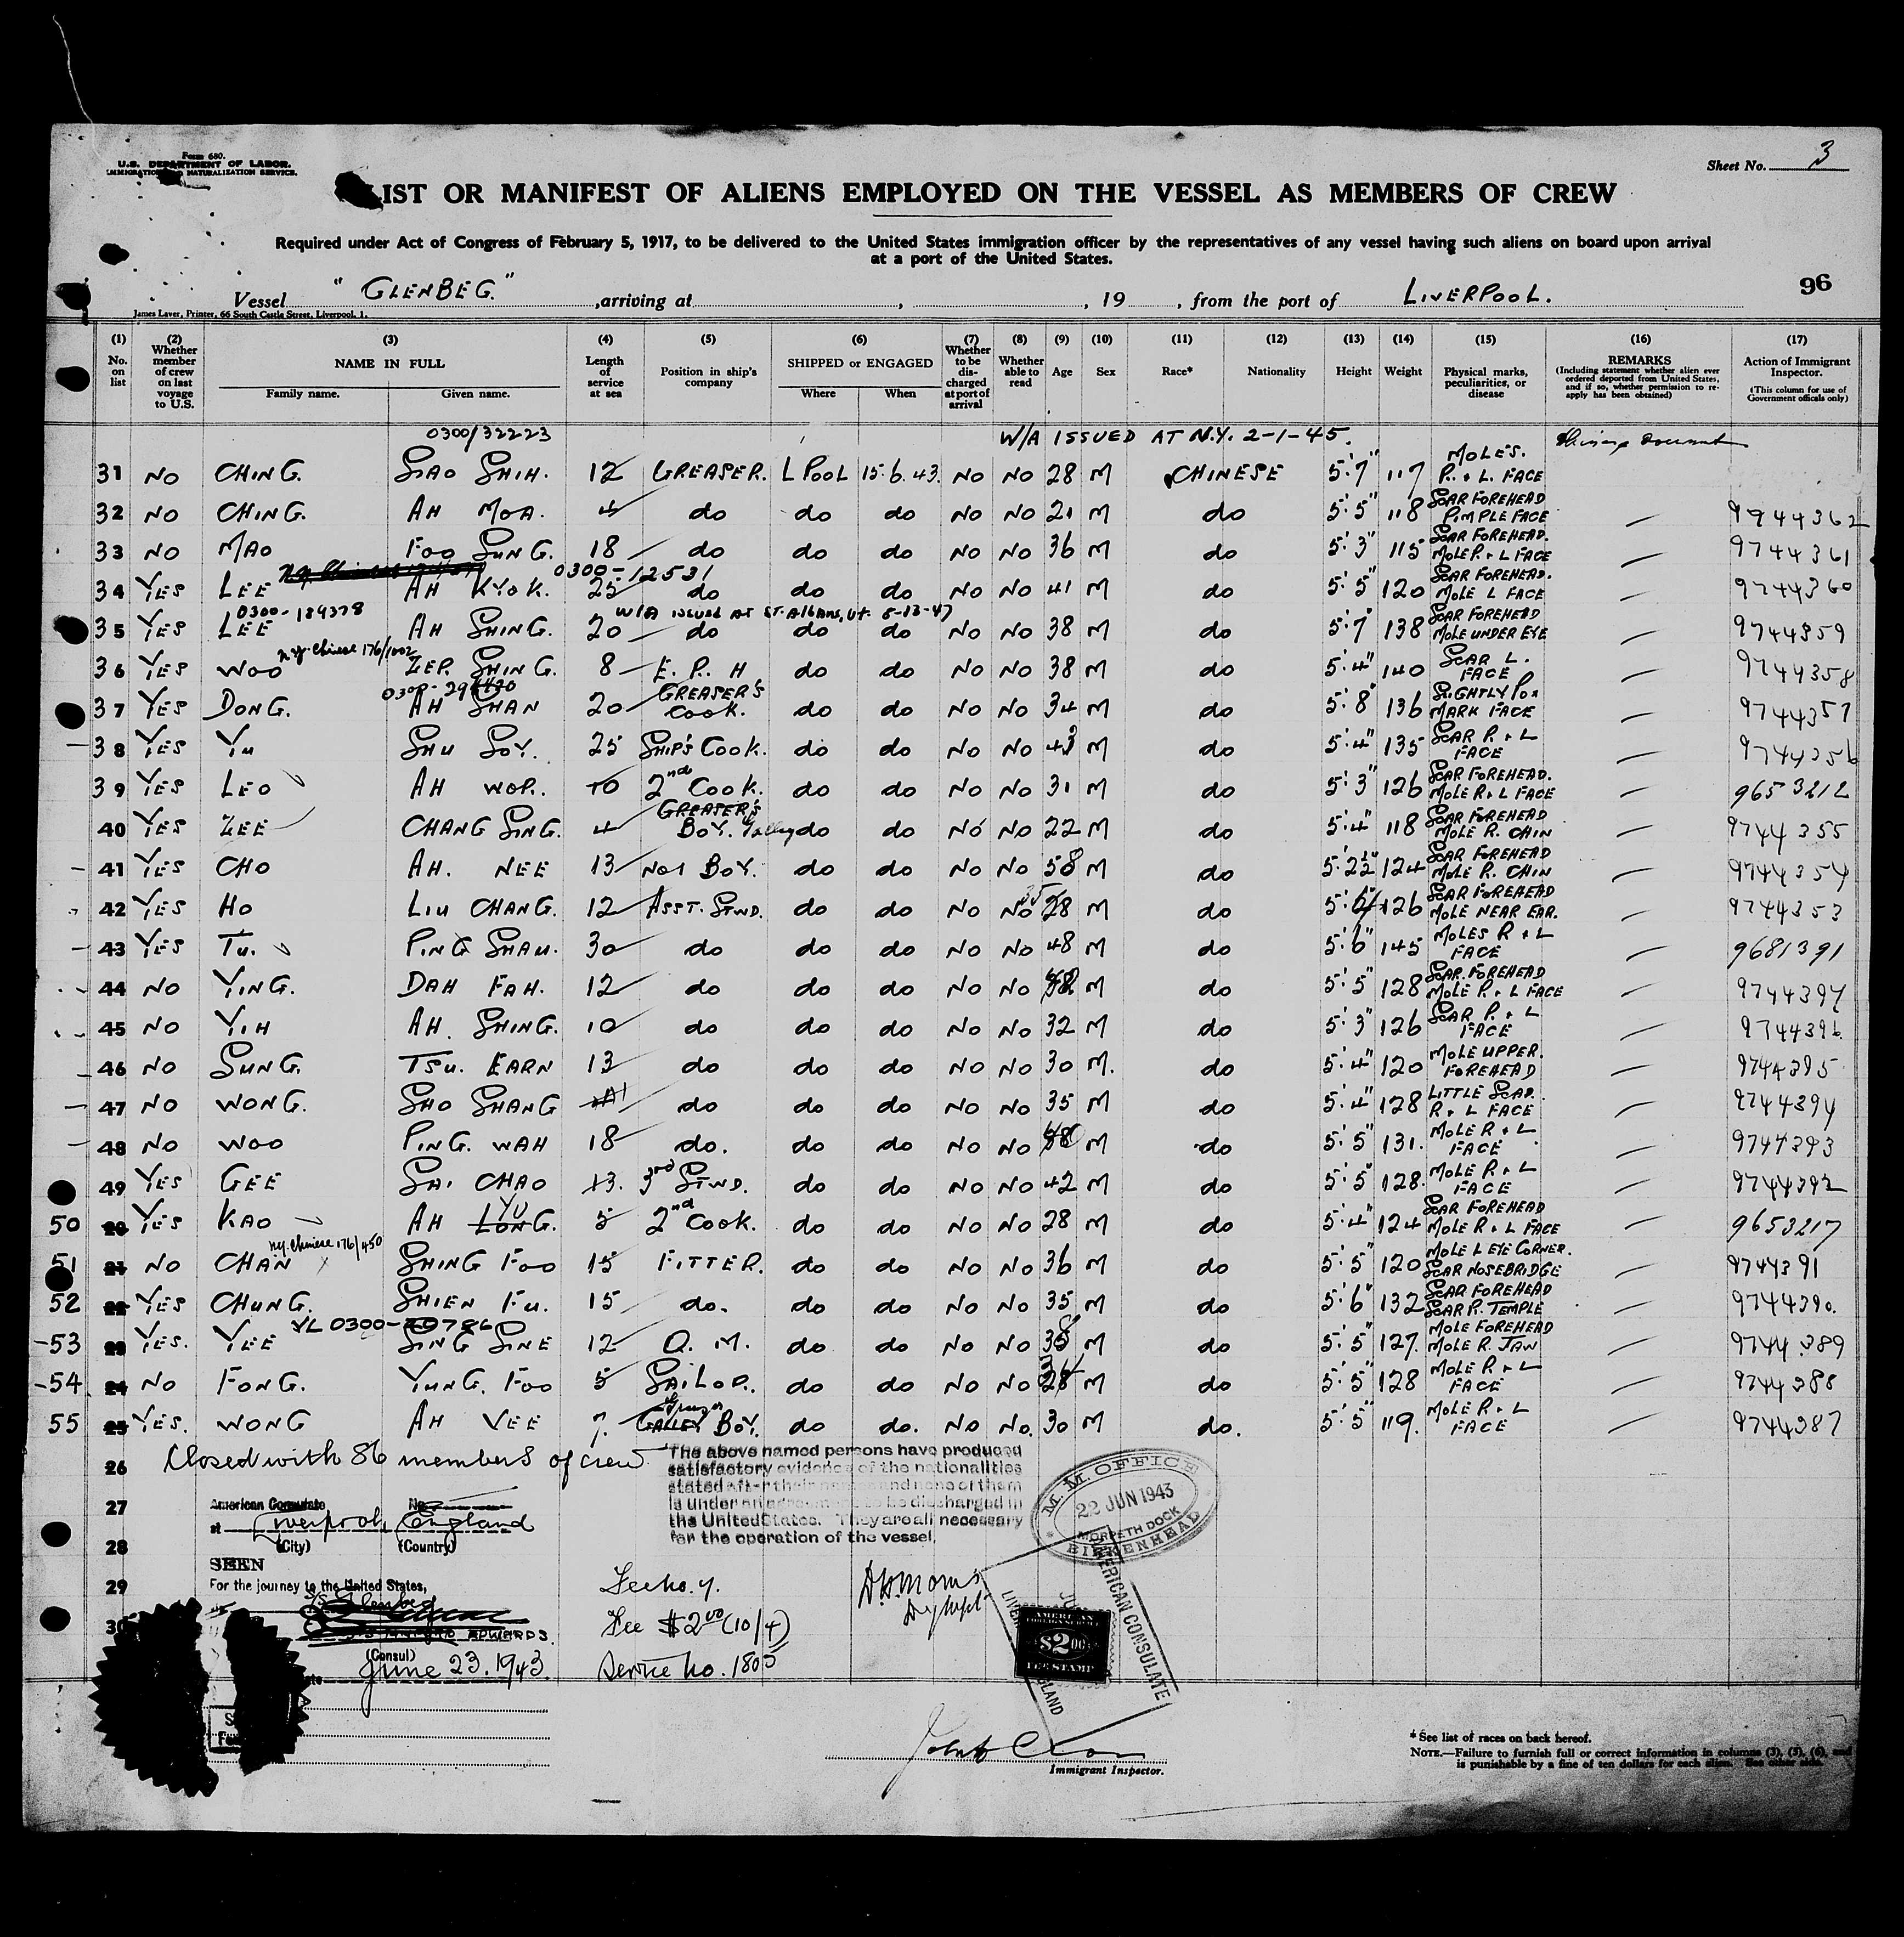 Form 680.
U.S. DEPARTMENT OF LABOR.
IMMIGRATION NATURALIZATION SERVICE.
Sheet No. 3
LIST OR MANIFEST OF ALIENS EMPLOYED ON THE VESSEL AS MEMBERS OF CREW
Required under Act of Congress of February 5, 1917, to be delivered to the United States immigration officer by the representatives of any vessel having such aliens on board upon arrival
at a port of the United States.
96
Vessel "GLENBEG." , arriving at , , 19 , from the port of LIVERPOOL.
James Laver, Printer, 66 South Castle Street, Liverpool, 1.
(1) No. on list
(2) Whether member of crew on last voyage to U.S.
(3) NAME IN FULL Family name. Given name.
(4) Length of service at sea
(5) Position in ship's company
(6) SHIPPED or ENGAGED Where When
(7) Whether to be discharged at port of arrival
(8) Whether able to read
(9) Age
(10) Sex
(11) Race*
(12) Nationality
(13) Height
(14) Weight
(15) Physical marks, peculiarities, or disease
(16) REMARKS (Including statement whether alien ever ordered deported from United States, and if so, whether permission to re-apply has been obtained)
(17) Action of Immigrant Inspector. (This column for use of Government officials only)
0300/32223 W/A ISSUED AT N.Y. 2-1-45.
31 NO CHING. SIAO SHIH. 12 GREASER. L POOL 15.6.43. NO NO 28 M CHINESE 5'.7" 117 MOLES. R. & L. FACE
32 NO CHING. AH MOA. 4 do do do NO NO 21 M do 5'.5" 118 SCAR FOREHEAD PIMPLE FACE 9944362
33 NO MAO FOO SUNG. 18 do do do NO NO 36 M do 5'.3" 115 SCAR FOREHEAD. MOLE R. & L FACE 9744361
0300-12531
34 YES LEE AH KYOK. 25 do do do NO NO 41 M do 5'.5" 120 SCAR FOREHEAD. MOLE L FACE 9744360
0300-189378 W/A issued at St. Albans, Vt. 8-13-47
35 YES LEE AH SHING. 20 do do do NO NO 38 M do 5'.7" 138 SCAR FOREHEAD MOLE UNDER EYE 9744359
N.Y. Chinese 176/1002
36 YES WOO ZEP. SHING. 8 E. R. H do do NO NO 38 M do 5'.4" 140 SCAR L. FACE 9744358
37 YES DONG. AH SHAN 20 GREASER'S COOK. do do NO NO 34 M do 5'.8" 136 SLIGHTLY POX MARK FACE 9744357
38 YES YU SHU SOY. 25 SHIP'S COOK. do do NO NO 43 M do 5'.4" 135 SCAR R. & L FACE 9744356
39 YES LEO AH WOR. 10 2nd COOK. do do NO NO 31 M do 5'.3" 126 SCAR FOREHEAD. MOLE R. & L FACE 9653212
40 YES ZEE CHANG SING. 4 GREASER'S BOY. Galley do do NO NO 22 M do 5'.4" 118 SCAR FOREHEAD MOLE R. CHIN 9744355
41 YES CHO AH. NEE 13 NO1 BOY. do do NO NO 58 M do 5'.2½" 124 SCAR FOREHEAD MOLE R. CHIN 9744354
42 YES HO LIU CHANG. 12 ASST. STWD. do do NO NO 35 28 M do 126 SCAR FOREHEAD MOLE NEAR EAR. 9744353
43 YES TU. PING SHAU. 30 do do do NO NO 48 M do 5'.6" 145 MOLES R & L FACE 9681391
44 NO YING. DAH FAH. 12 do do do NO NO M do 5'.5" 128 SCAR. FOREHEAD MOLE R. & L FACE 9744397
45 NO YIH AH. SHING. 10 do do do NO NO 32 M do 5'.3" 126 SCAR R. & L FACE 9744396
46 NO SUNG. TSU. EARN 13 do do do NO NO 30 M. do 5'.4" 120 MOLE UPPER. FOREHEAD 9744395
47 NO WONG. SHO SHANG do do do NO NO 35 M do 5'.4" 128 LITTLE SCAR. R & L FACE 9744394
48 NO WOO PING. WAH 18 do. do do NO NO M do 5'.5" 131. MOLE R & L FACE 9744393
49 YES GEE SAI CHAO 13. 3rd STWD. do do NO NO 42 M do 5'.5" 128. MOLE R. & L FACE 9744392
50 YES KAO AH LONG. YU 5 2nd COOK. do do NO NO 28 M do 5'.4" 124 SCAR FOREHEAD MOLE R & L FACE 9653217
N.Y. Chinese 176/450
51 21 NO CHAN SHING FOO 15 FITTER. do do NO NO 36 M do 5'.5" 120 MOLE L EYE CORNER. SCAR NOSEBRIDGE 9744391
52 22 YES CHUNG. SHIEN FU. 15 do. do do NO NO 35 M do 5'.6" 132 SCAR FOREHEAD SCAR R. TEMPLE 9744390.
VL 0300-20786
53 23 YES. YEE SING SINE 12 Q. M. do do NO NO 38 M do 5'.5" 127. MOLE FOREHEAD MOLE R. JAW 9744389
54 24 NO FONG. YUNG. FOO 5 SAILOR. do do NO NO 34 28 M do 5'.5" 128 MOLE R. & L FACE 9744388
55 25 YES. WONG AH VEE 7. GALLEY BOY. do do. NO NO. 30 M do. 5'.5" 119. MOLE R. & L FACE 9744387
26 Closed with 86 members of crew
The above named persons have produced
satisfactory evidence of the nationalities
stated after their names and none of them
is under an agreement to be discharged in
the United States. They are all necessary
for the operation of the vessel.
27 American Consulate
at Liverpool, England
28 (City) (Country)
SEEN
29 For the journey to the United States,
S/S Glenbeg
30 EDWARDS.
(Consul)
June 23, 1943
Fee No. 4.
Fee $2.00 (10/4)
Service No. 1805
M. M. OFFICE
22 JUN 1943
MORPETH DOCK
BIRKENHEAD
AMERICAN CONSULATE
AMERICAN
$2.00
FEE STAMP
Immigrant Inspector.
* See list of races on back hereof.
NOTE.—Failure to furnish full or correct information in columns (3), (5), (6), and
is punishable by a fine of ten dollars for each alien. See other side.